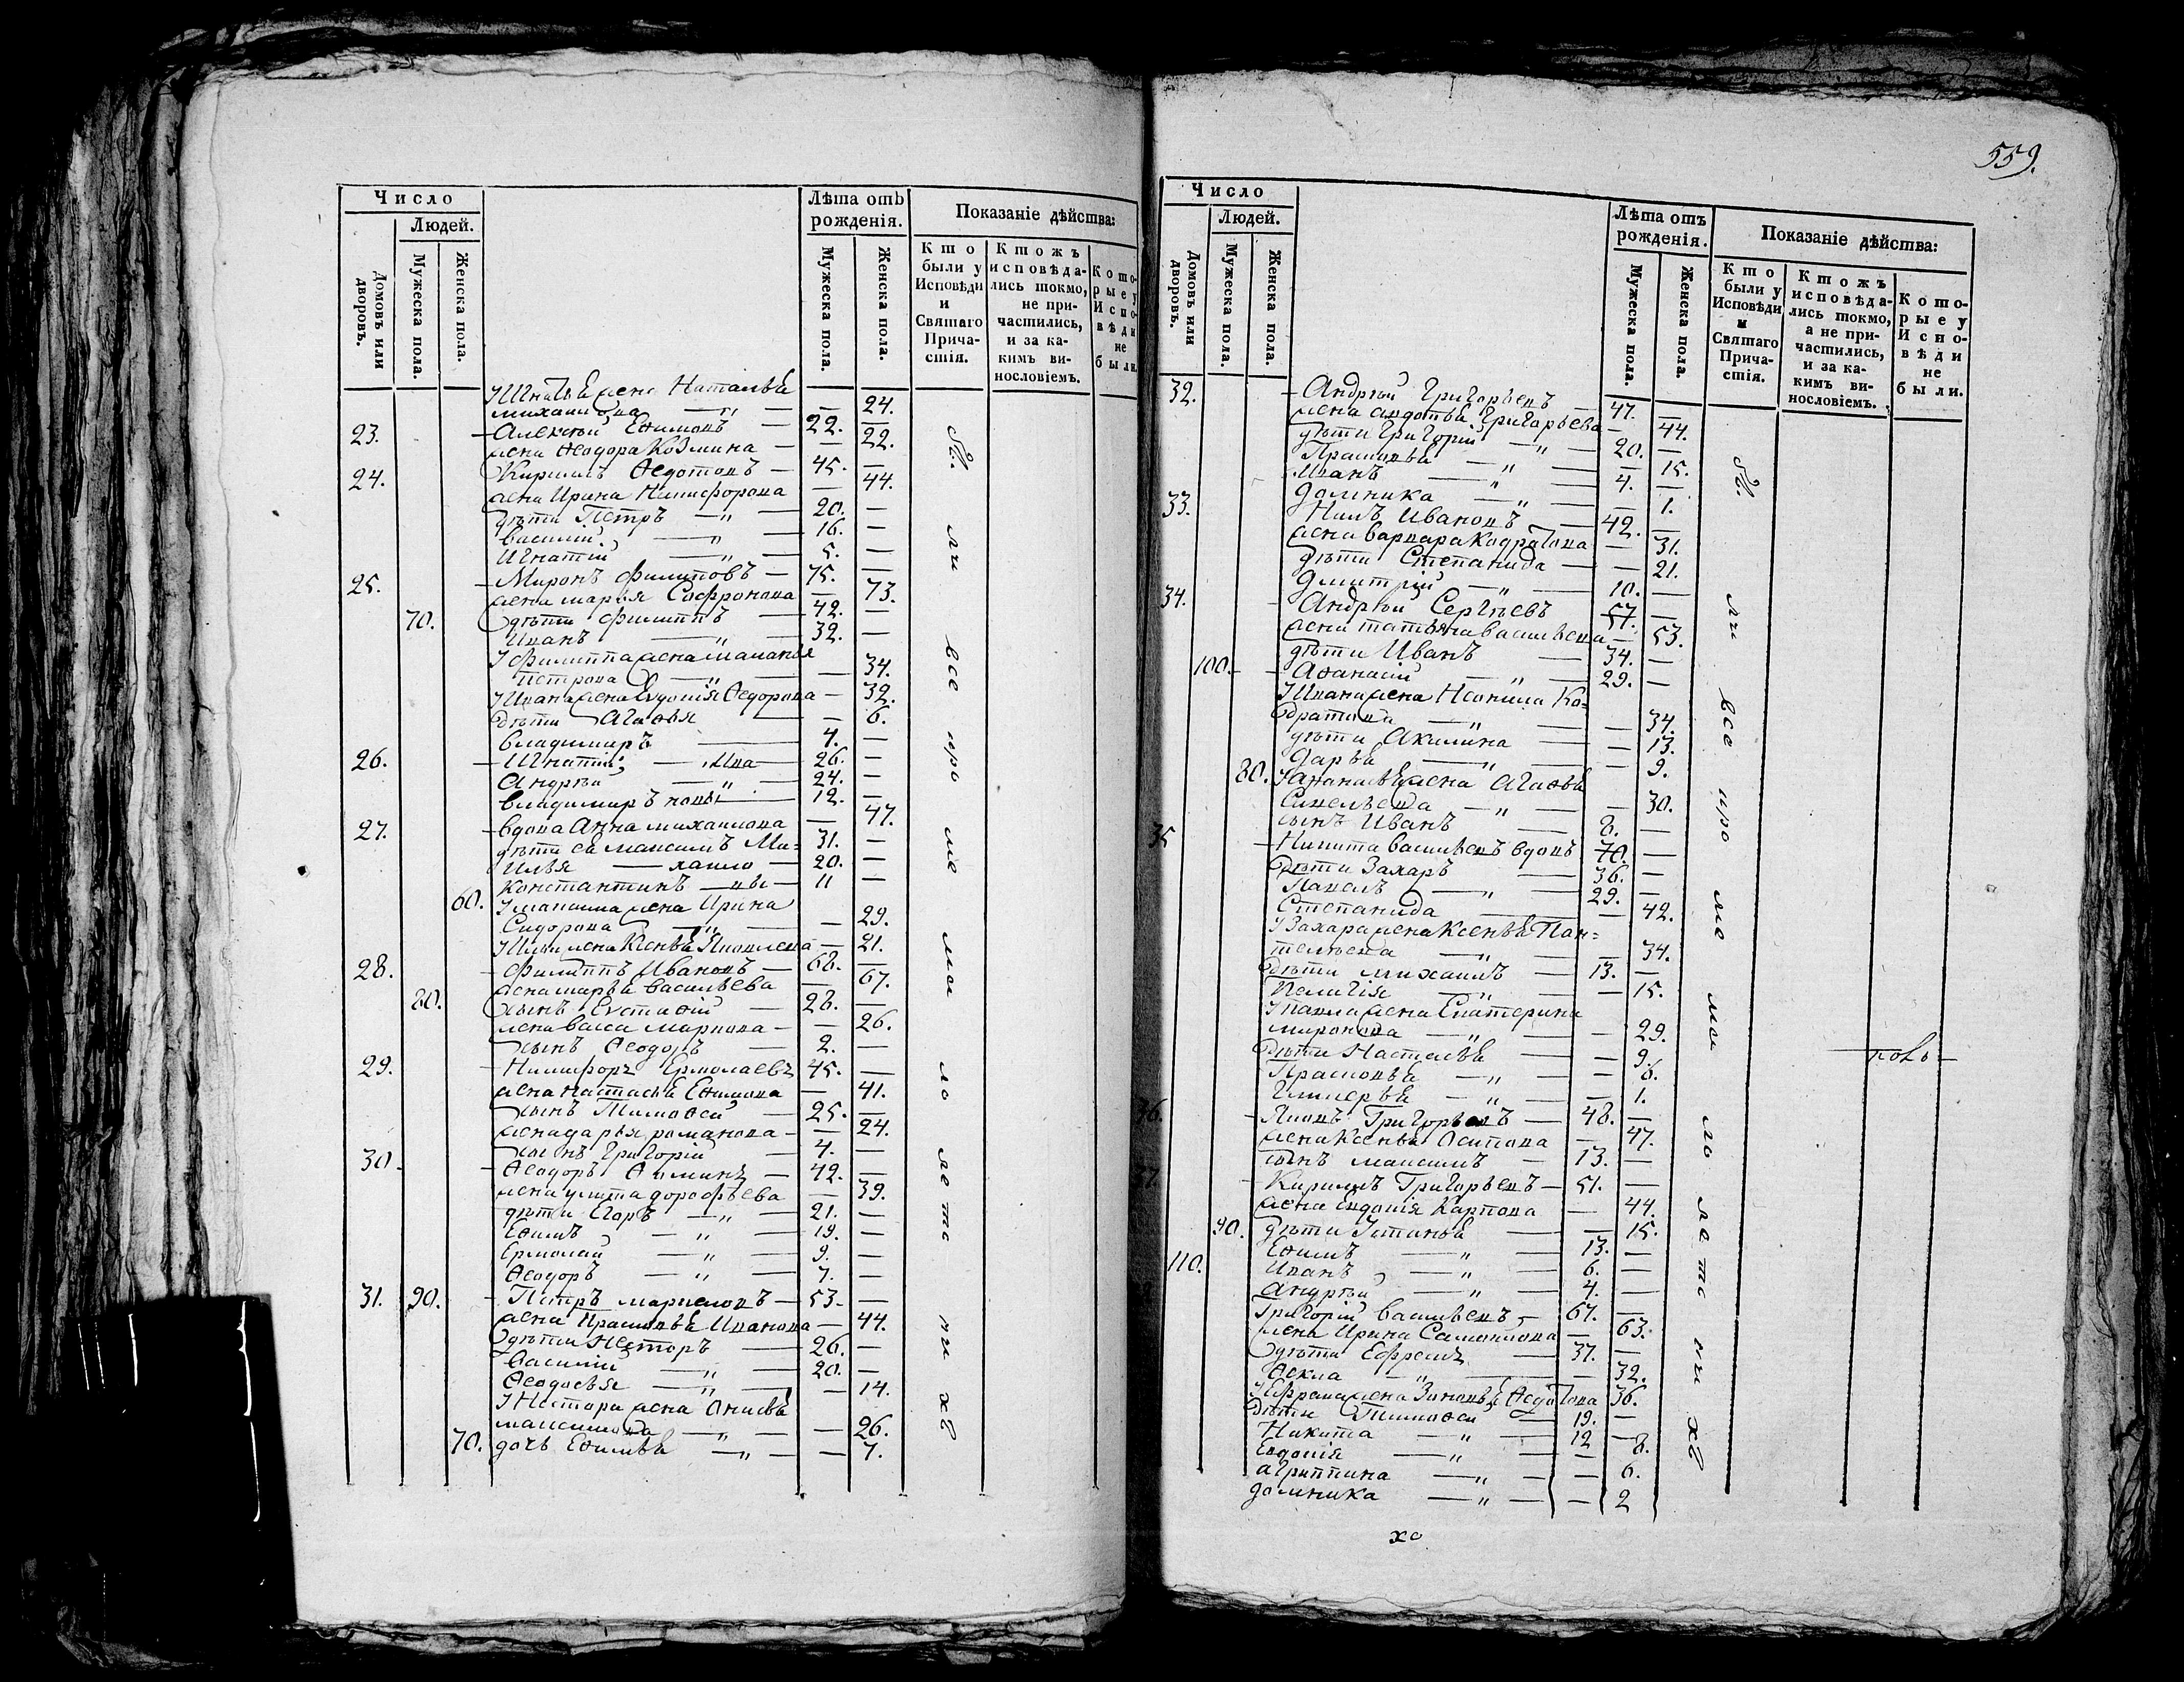 559.
Число
Людей.
Домовъ или дворовъ.
Мужеска пола.
Женска пола.
Лѣта отъ рожденія.
Мужеска пола.
Женска пола.
Показаніе дѣйства:
Кто были у Исповѣди и Святаго Причастія.
Ктожъ исповѣдались токмо, не причастились, и за какимъ винословіемъ.
Которые у Исповѣди не были.
У Игнатья жена Наталья
михайлова — 24.
23. Алексѣй Ефимовъ — 22. —
жена Ѳеодора Козмина — 22.
24. Кирилъ Ѳедотовъ — 45. —
жена Ирина Никифорова — 44.
дѣти Петръ — 20. —
василій — 16. —
Игнатій — 5. —
25. Миронъ филиповъ — 75. —
жена марья Софронова — 73.
70. дѣти филиппъ — 42. —
Иванъ — 32. —
У филиппа жена маланья
петрова — 34.
У Ивана жена Евдокія Ѳедорова — 32.
дѣти Агафья — 6.
владимиръ — 4. —
26. Игнатій — 26. —
Андрей — 24. —
владимиръ — 12. —
27. вдова Анна михаилова — 47.
дѣти ея максимъ Ми= 31. —
Илья — хаило — 20. —
Константинъ — вы — 11 —
60. У максима жена Ирина
Сидорова — 29.
У Ильи жена Ксенья Яковлева — 21.
28. филиппъ Ивановъ — 68. —
жена марья васильева — 67.
80. сынъ Евстафій — 28. —
жена васса маркова — 26.
сынъ Ѳеодоръ — 2. —
29. Никифоръ Ермолаевъ 45. —
жена настасья Ефимова — 41.
сынъ Тимофей — 25. —
жена дарья романова — 24.
сынъ Григорій — 4. —
30. Ѳеодоръ Ѳоминъ — 42. —
жена улита дорофѣева — 39.
дѣти Егоръ — 21. —
Ефимъ — 19. —
Ермолай — 9. —
Ѳеодоръ — 7. —
31. 90. Петръ маркеловъ — 53. —
жена Прасковья Иванова — 44.
дѣти Несторъ — 26. —
василій — 20. —
Ѳеодосья — 14.
У Нестора жена Анисья
максимова — 26.
70. дочь Ефимья — 7.
Число
Людей.
Домовъ или дворовъ.
Мужеска пола.
Женска пола.
Лѣта отъ рожденія.
Мужеска пола.
Женска пола.
Показаніе дѣйства:
Кто были у Исповѣди и Святаго Причастія.
Ктожъ исповѣдались токмо, а не причастились, и за какимъ винословіемъ.
Которые у Исповѣди не были.
32. Андрѣй Григорьевъ — 47. —
жена авдотья Григорьева — 44.
дѣти Григорій — 20. —
Прасковья — 15.
Иванъ — 4. —
домника — 1.
33. Нилъ Ивановъ — 42. —
жена варвара Кодратова — 31.
дѣти Степанида — 21.
дмитрій — 10. —
34. Андрѣй Сергѣевъ 57. —
жена татьяна васильева — 53.
дѣти Иванъ — 34. —
100. Афанасій — 29. —
У Ивана жена Неонила Ко=
дратова — 34.
дѣти Акилина — 13.
дарья — 9.
80. У Афанасья жена Агафья
Савельева — 30.
сынъ Иванъ — 8. —
35 Никита васильевъ вдовъ 70. —
дѣти Захаръ — 36. —
Павелъ — 29. —
Степанида — 42.
У Захара жена Ксенья Пан=
телѣева — 34.
дѣти михаилъ — 13. —
Пелагія — 15.
У павла жена Екатерина
миронова — 29.
дѣти Настасья — 9.
Прасковья — 6.
Гликерья — 1.
36. Яковъ Григорьевъ — 48. —
жена Ксенья Осипова — 47.
сынъ максимъ — 13. —
Кирилъ Григорьевъ — 51. —
жена Евдокія Карпова — 44.
90. дѣти Устинья — 15.
Ефимъ — 13. —
110. Иванъ — 6. —
Андрѣй — 4. —
Григорій васильевъ — 67. —
жена Ирина Самойлова — 63.
дѣти Ефремъ — 37. —
Ѳекла — 32.
У Ефрема жена Зиновья Ѳедотова 36.
дѣти Тимофей — 19. —
Никита — 12 —
Евдокія — 8.
агриппина — 6.
домника — 2